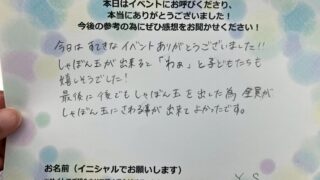 本日はイベントにお呼びくださり、
本当にありがとうございました！
今後の参考の為にぜひ感想をお聞かせください！
今日は すてきな イベント ありがとうございました!!
しゃぼん玉が出来ると「わぁ」と子どもたちも
嬉しそうでした！
最後に 後でも しゃぼん玉を出した為 全員が
しゃぼん玉に さわる事が出来て よかったです。
お名前（イニシャルでお願いします）
Y.S